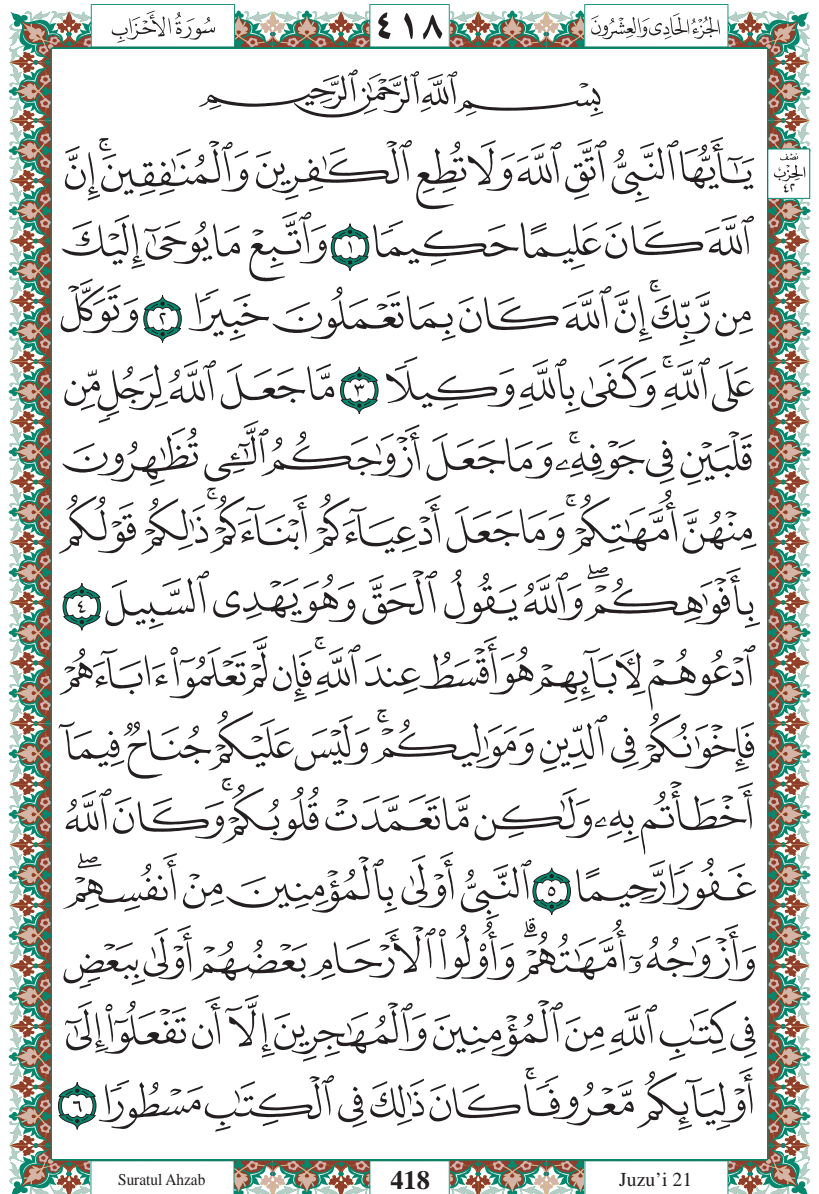 سُورَةُ الأَحْزَابِ ٤١٨ الجُزْءُ الحَادِى وَالعِشْرُونَ
بِسْمِ ٱللَّهِ ٱلرَّحْمَٰنِ ٱلرَّحِيمِ
يَـٰٓأَيُّهَا ٱلنَّبِىُّ ٱتَّقِ ٱللَّهَ وَلَا تُطِعِ ٱلْكَـٰفِرِينَ وَٱلْمُنَـٰفِقِينَ ۚ إِنَّ
نصف الحزب ٤٢
ٱللَّهَ كَانَ عَلِيمًا حَكِيمًا ١ وَٱتَّبِعْ مَا يُوحَىٰٓ إِلَيْكَ
مِن رَّبِّكَ ۚ إِنَّ ٱللَّهَ كَانَ بِمَا تَعْمَلُونَ خَبِيرًا ٢ وَتَوَكَّلْ
عَلَى ٱللَّهِ ۚ وَكَفَىٰ بِٱللَّهِ وَكِيلًا ٣ مَّا جَعَلَ ٱللَّهُ لِرَجُلٍ مِّن
قَلْبَيْنِ فِى جَوْفِهِۦ ۚ وَمَا جَعَلَ أَزْوَٰجَكُمُ ٱلَّـٰٓـِٔى تُظَـٰهِرُونَ
مِنْهُنَّ أُمَّهَـٰتِكُمْ ۚ وَمَا جَعَلَ أَدْعِيَآءَكُمْ أَبْنَآءَكُمْ ۚ ذَٰلِكُمْ قَوْلُكُم
بِأَفْوَٰهِكُمْ ۖ وَٱللَّهُ يَقُولُ ٱلْحَقَّ وَهُوَ يَهْدِى ٱلسَّبِيلَ ٤
ٱدْعُوهُمْ لِـَٔابَآئِهِمْ هُوَ أَقْسَطُ عِندَ ٱللَّهِ ۚ فَإِن لَّمْ تَعْلَمُوٓا۟ ءَابَآءَهُمْ
فَإِخْوَٰنُكُمْ فِى ٱلدِّينِ وَمَوَٰلِيكُمْ ۚ وَلَيْسَ عَلَيْكُمْ جُنَاحٌ فِيمَآ
أَخْطَأْتُم بِهِۦ وَلَـٰكِن مَّا تَعَمَّدَتْ قُلُوبُكُمْ ۚ وَكَانَ ٱللَّهُ
غَفُورًا رَّحِيمًا ٥ ٱلنَّبِىُّ أَوْلَىٰ بِٱلْمُؤْمِنِينَ مِنْ أَنفُسِهِمْ ۖ
وَأَزْوَٰجُهُۥٓ أُمَّهَـٰتُهُمْ ۗ وَأُو۟لُوا۟ ٱلْأَرْحَامِ بَعْضُهُمْ أَوْلَىٰ بِبَعْضٍ
فِى كِتَـٰبِ ٱللَّهِ مِنَ ٱلْمُؤْمِنِينَ وَٱلْمُهَـٰجِرِينَ إِلَّآ أَن تَفْعَلُوٓا۟ إِلَىٰٓ
أَوْلِيَآئِكُم مَّعْرُوفًا ۚ كَانَ ذَٰلِكَ فِى ٱلْكِتَـٰبِ مَسْطُورًا ٦
Suratul Ahzab 418 Juzu'i 21